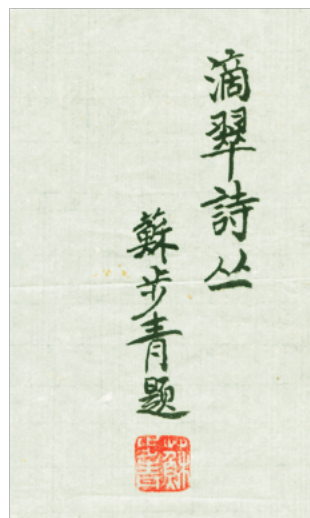 滴翠詩丛
蘇步青题
蘇步青